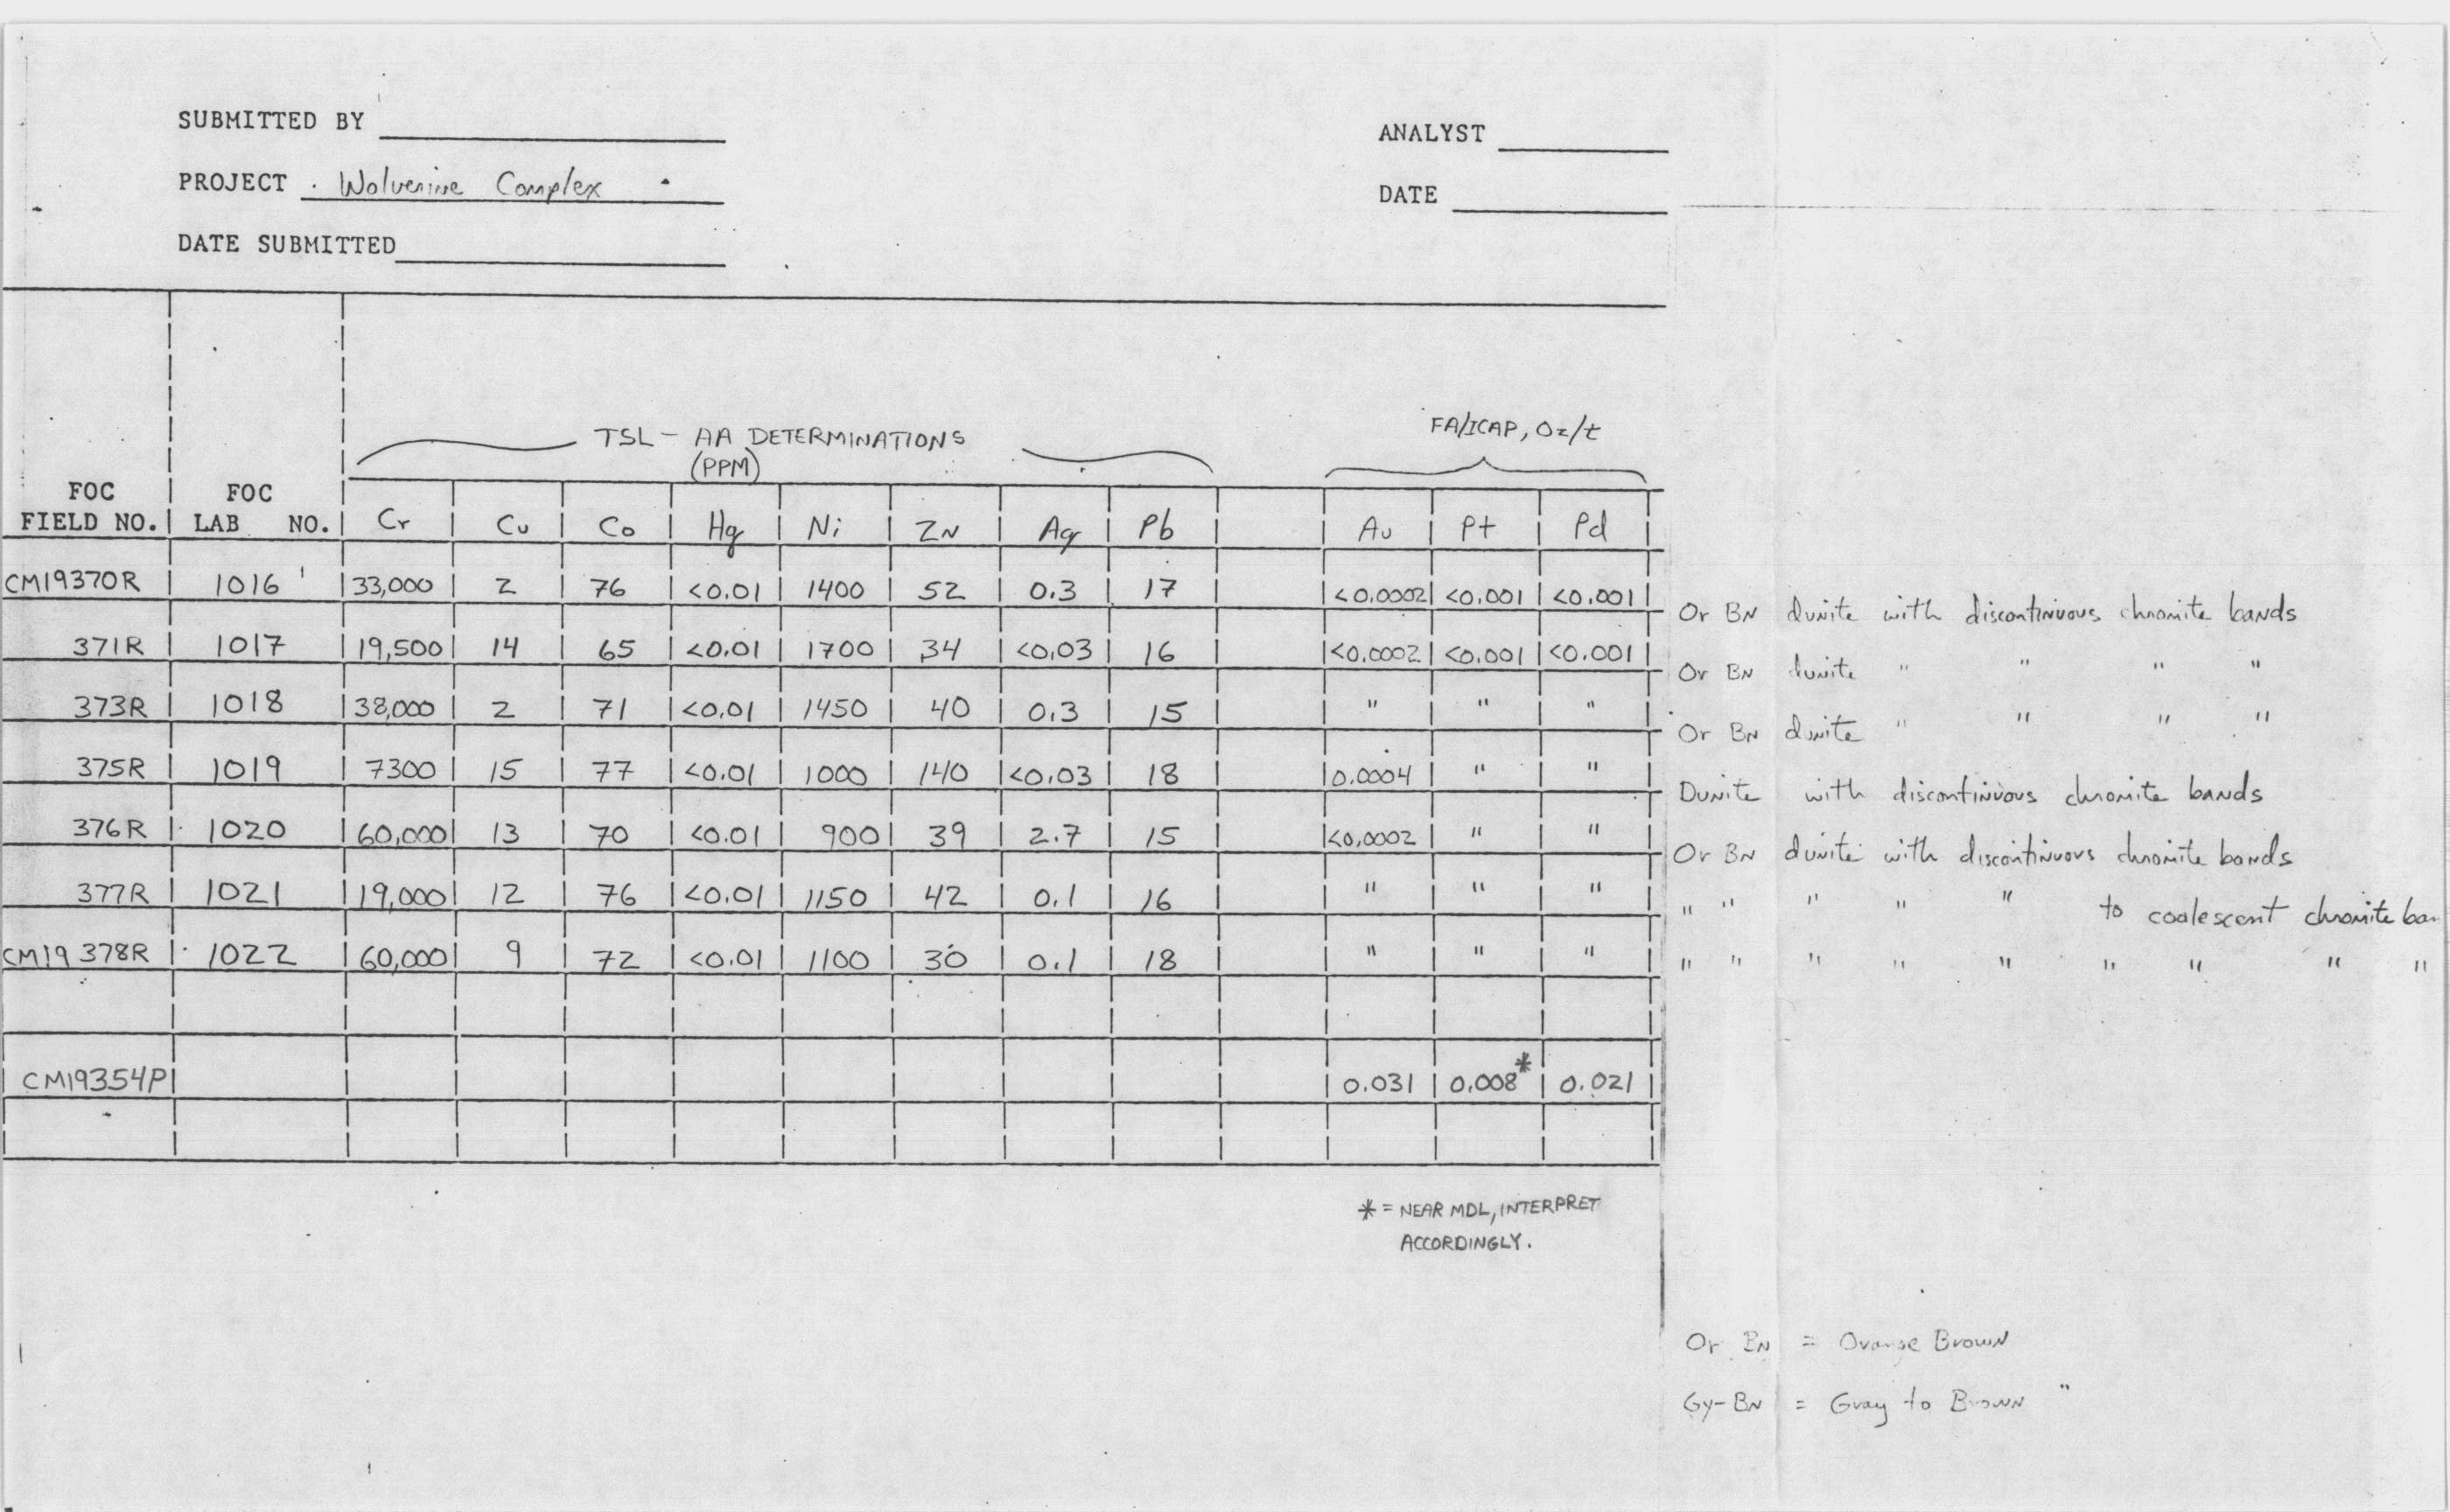 SUBMITTED BY
ANALYST
PROJECT Wolverine Complex
DATE
DATE SUBMITTED
TSL - AA DETERMINATIONS
(PPM)
FA/ICAP, Oz/t
FOC FIELD NO. FOC LAB NO. Cr Cu Co Hg Ni ZN Ag Pb Au Pt Pd
CM19370R 1016 33,000 2 76 <0.01 1400 52 0.3 17 <0.0002 <0.001 <0.001 Or BN dunite with discontinuous chromite bands
371R 1017 19,500 14 65 <0.01 1700 34 <0.03 16 <0.0002 <0.001 <0.001 Or BN dunite " " " "
373R 1018 38,000 2 71 <0.01 1450 40 0.3 15 " " " Or BN dunite " " " "
375R 1019 7300 15 77 <0.01 1000 140 <0.03 18 0.0004 " " Dunite with discontinuous chromite bands
376R 1020 60,000 13 70 <0.01 900 39 2.7 15 <0.0002 " " Or BN dunite with discontinuous chromite bands
377R 1021 19,000 12 76 <0.01 1150 42 0.1 16 " " " " " " " " to coalescent chromite ban
CM19 378R 1022 60,000 9 72 <0.01 1100 30 0.1 18 " " " " " " " " " " " "
CM19354P 0.031 0.008* 0.021
* = NEAR MDL, INTERPRET
ACCORDINGLY.
Or BN = Orange Brown
Gy-BN = Gray to Brown "